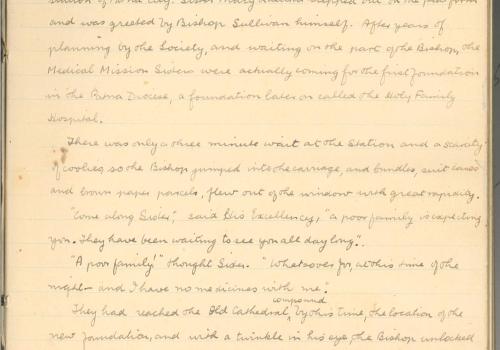 station of Patna City. Sister Mary stepped out on the platform
and was greeted by Bishop Sullivan himself. After years of
planning by the Society, and waiting on the part of the Bishop, the
Medical Mission Sisters were actually coming for the first foundation
in the Patna Diocese, a foundation later on called the Holy Family
Hospital.
There was only a three minute wait at the Station and a scarcity
of coolies, so the Bishop jumped into the carriage, and bundles, suit cases
and brown paper parcels, flew out of the window with great rapidity.
"Come along Sister," said His Excellency, "a poor family is expecting
you. They have been waiting to see you all day long".
"A poor family" thought Sister. "Whatsoever for, at this time of the
night — and I have no medicines with me."
compound
They had reached the Old Cathedral, by this time, the location of the
new foundation, and with a twinkle in his eye, the Bishop unlocked